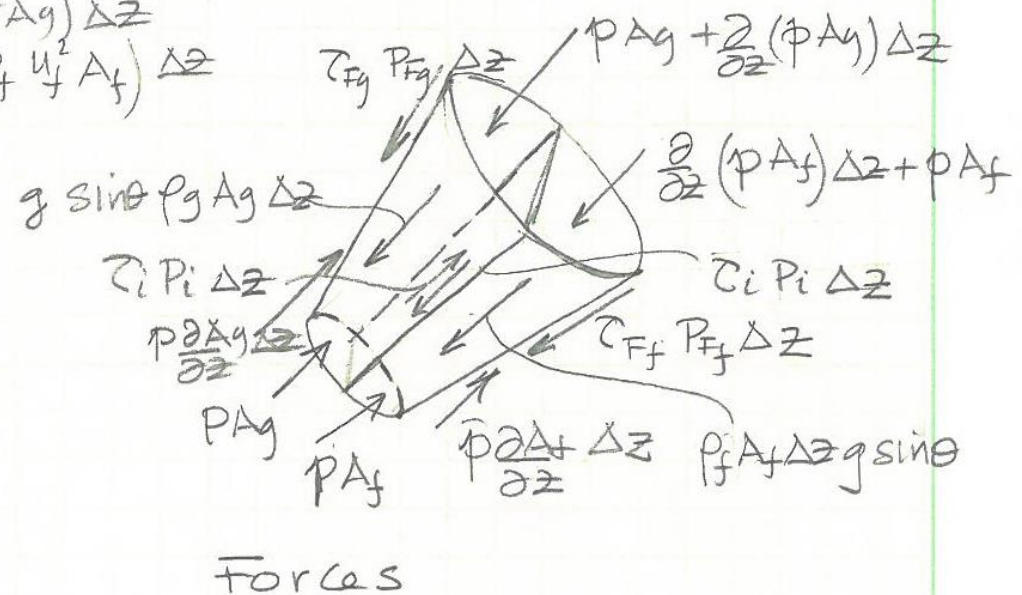 Ag) Δz
f u_f^2 A_f) Δz
τ_Fg P_Fg Δz
pAg + ∂/∂z (pAg) Δz
∂/∂z (pA_f) Δz + pA_f
g sinθ ρg Ag Δz
τ_i P_i Δz
τ_i P_i Δz
p ∂Ag/∂z Δz
τ_Ff P_Ff Δz
pAg
pA_f
p ∂A_f/∂z Δz
ρ_f A_f Δz g sinθ
Forces